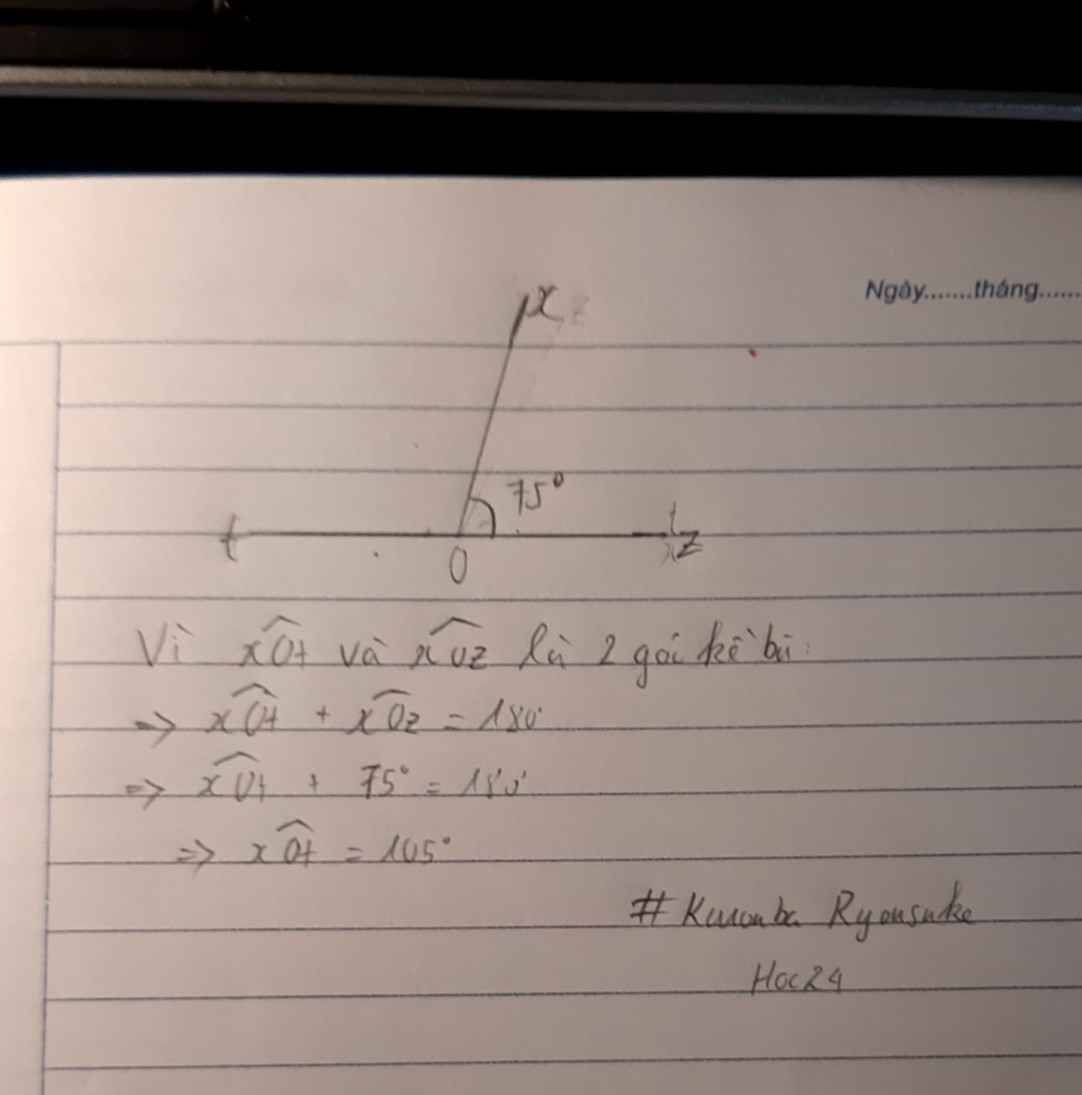 Ngày.......tháng......
x
75°
t
z
O
Vì xOt và xOz là 2 góc kề bù:
=> xOt + xOz = 180°
=> xOt + 75° = 180°
=> xOt = 105°
# Ryousuke
Hoc24